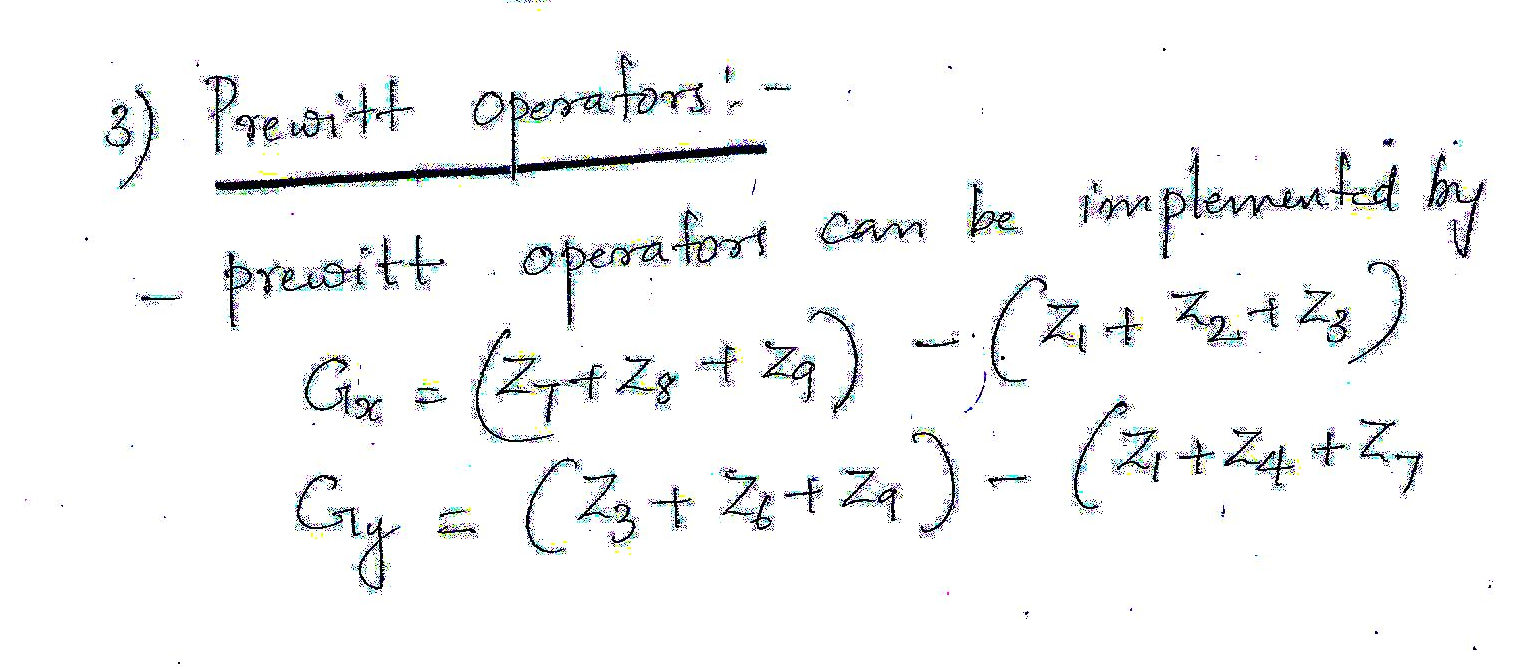 3) Prewitt operators:-
- prewitt operators can be implemented by
Gx = (Z7 + Z8 + Z9) - (Z1 + Z2 + Z3)
Gy = (Z3 + Z6 + Z9) - (Z1 + Z4 + Z7